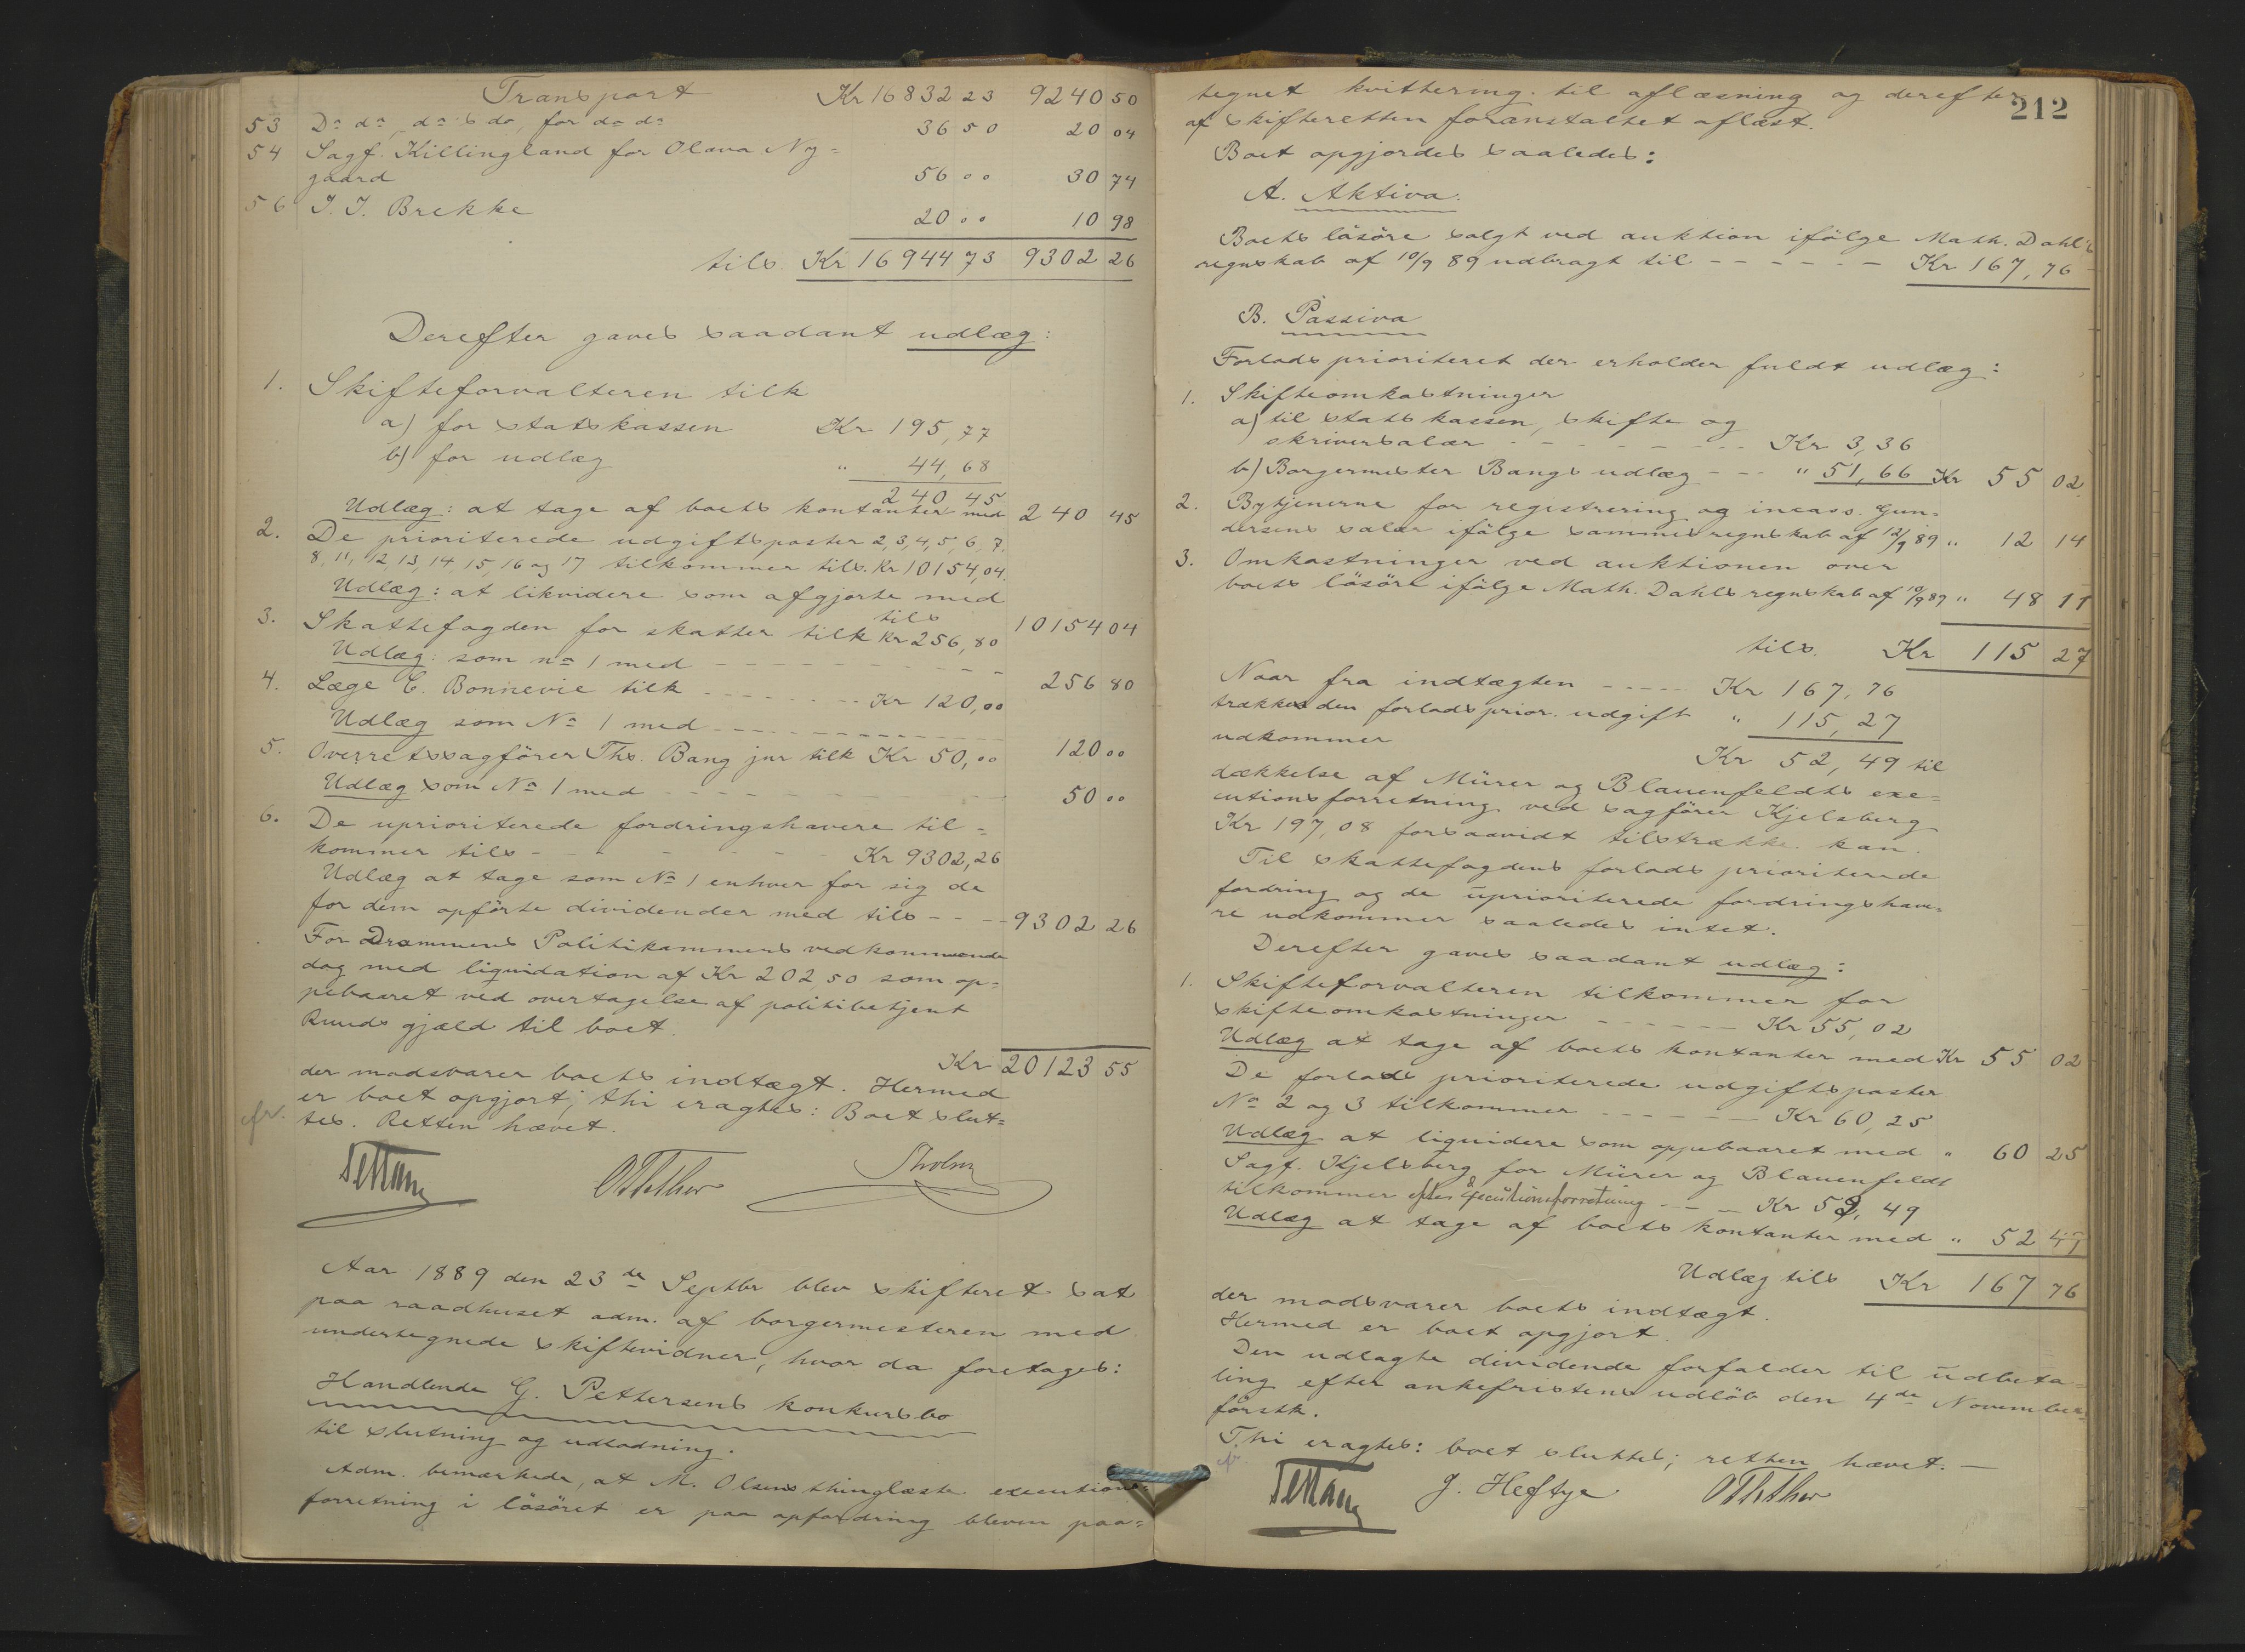 Transport Kr 16832 23 9240 50
53 Do do, do's do, for do do 36 50 20 04
54 Sagf. Killingland for Olava Ny=
gaard 56 00 30 74
56 J. J. Brekke 20 00 10 98
tils. Kr 16944 73 9302 26
Derefter gaves saadant udlæg:
1. Skifteforvalteren tilk
a) for statskassen Kr 195,77
b) for udlæg " 44,68
240 45
Udlæg: at tage af boets kontanter med 240 45
2. De prioriterede udgiftsposter 2, 3, 4, 5, 6, 7,
8, 11, 12, 13, 14, 15, 16 og 17 tilkommer tils. Kr 10154,04.
Udlæg: at likvidere som afgjorte med
tils 10154 04
3. Skattefogden for skatter tilk Kr 256,80
Udlæg: som no 1 med - - - 256 80
4. Læge C. Bonnevie tilk - - - Kr 120,00
Udlæg som No 1 med - - - 120 00
5. Overretssagförer Ths. Bang jnr tilk Kr 50,00
Udlæg som No 1 med - - - 50 00
6. De uprioriterede fordringshavere til=
kommer tils - - - Kr 9302,26
Udlæg at tage som No 1 enhver for sig de
for dem opförte dividender med tils - - - 9302 26
For Drammens Politikammers vedkommende
dog med liquidation af Kr 202,50 som op=
pebaaret ved overtagelse af politibetjent
Ruuds gjæld til boet.
Kr 20123 55
der modsvarer boets indtægt. Hermed
er boet opgjort; thi eragtes: Boet slut=
tes. Retten hævet.
Aar 1889 den 23de Septbr blev skifteret sat
paa raadhuset adm. af borgermesteren med
undertegnede skiftevidner, hvor da foretages:
Handlende G. Pettersens konkursbo
til slutning og udlodning.
Adm. bemærkede, at M. Olsens thinglæste executions=
forretning i lösöret er paa opfordring bleven paa=
212
tegnet kvittering til aflæsning og derefter
af skifteretten foranstaltet aflæst.
Boet opgjordes saaledes:
A. Aktiva.
Boets lösöre solgt ved auktion ifölge Math. Dahl's
regnskab af 10/9 89 udbragt til - - - Kr 167,76
B. Passiva
Forlods prioriteret der erholder fuldt udlæg:
1. Skifteomkostninger
a) til statskassen, skifte og
skriversalær - - - Kr 3,36
b) Borgermester Bangs udlæg - - " 51,66 Kr 55 02
2. Bytjenerne for registrering og incass. Gun=
dersens salær ifölge sammes regnskab af 12/9 89 " 12 14
3. Omkostninger ved auktionen over
boets lösöre ifölge Math. Dahls regnskab af 10/9 89 " 48 11
tils. Kr 115 27
Naar fra indtægten - - - Kr 167,76
trækkes den forlods prior. udgift " 115,27
udkommer Kr 52,49 til
dækkelse af Mürer og Blauenfeldts exe=
cutionsforretning ved sagförer Kjelsberg
Kr 197,08 forsaavidt tilstrække kan.
Til skattefogdens forlods prioriterede
fordring og de uprioriterede fordringshave=
re udkommer saaledes intet.
Derefter gaves saadant udlæg:
1. Skifteforvalteren tilkommer for
skifteomkostninger - - - Kr 55,02
Udlæg at tage af boets kontanter med Kr 55 02
De forlods prioriterede udgiftsposter
No 2 og 3 tilkommer - - - Kr 60,25
Udlæg at liquidere som oppebaaret med " 60 25
Sagf. Kjelsberg for Mürer og Blauenfeldt
tilkommer efter Executionsforretning - - - Kr 52,49
Udlæg at tage af boets kontanter med " 52 49
Udlæg tils Kr 167 76
der modsvarer boets indtægt.
Hermed er boet opgjort.
Den udlagte dividende forfalder til udbeta=
ling efter ankefristens udlöb den 4de November
förstk.
Thi eragtes: boet sluttes; retten hævet. —
J. Heftye